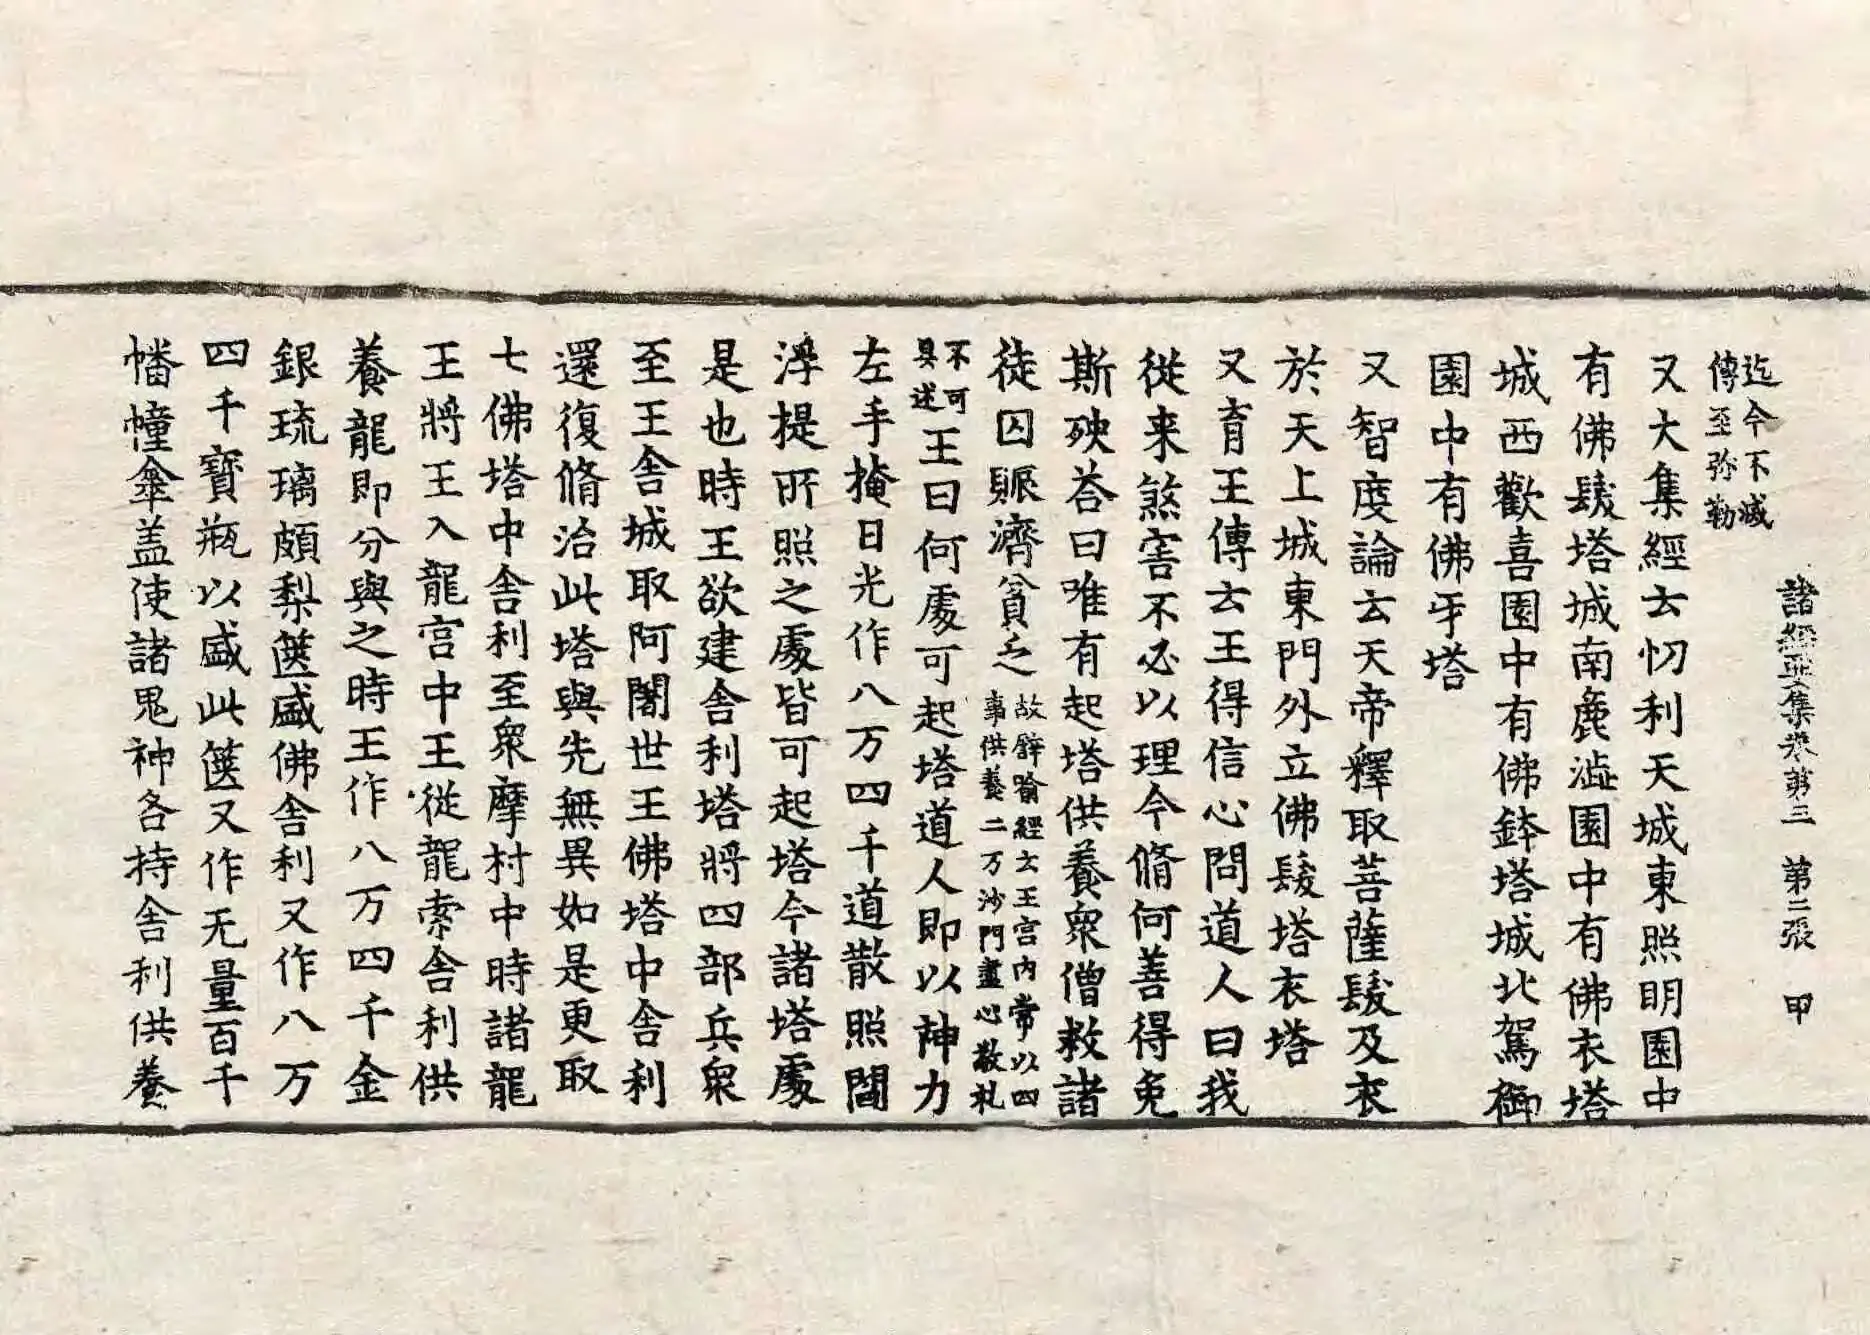 諸經要集卷第三 第二張 甲
迄今不滅
傳至弥勒
又大集經云忉利天城東照明園中
有佛髮塔城南麁澁園中有佛衣塔
城西歡喜園中有佛鉢塔城北駕御
園中有佛牙塔
又智度論云天帝釋取菩薩髮及衣
於天上城東門外立佛髮塔衣塔
又育王傳云王得信心問道人曰我
從来煞害不必以理今脩何善得免
斯殃荅曰唯有起塔供養衆僧救諸
徒囚賑濟貧乏故辟喻經云王宫内常以四
事供養二万沙門盡心敬礼
不可
具述王曰何處可起塔道人即以神力
左手掩日光作八万四千道散照閻
浮提所照之處皆可起塔今諸塔處
是也時王欲建舎利塔將四部兵衆
至王舎城取阿闍世王佛塔中舎利
還復脩治此塔與先無異如是更取
七佛塔中舎利至衆摩村中時諸龍
王將王入龍宫中王從龍索舎利供
養龍即分與之時王作八万四千金
銀琉璃頗梨篋盛佛舎利又作八万
四千寶瓶以盛此篋又作无量百千
幡幢傘盖使諸鬼神各持舎利供養